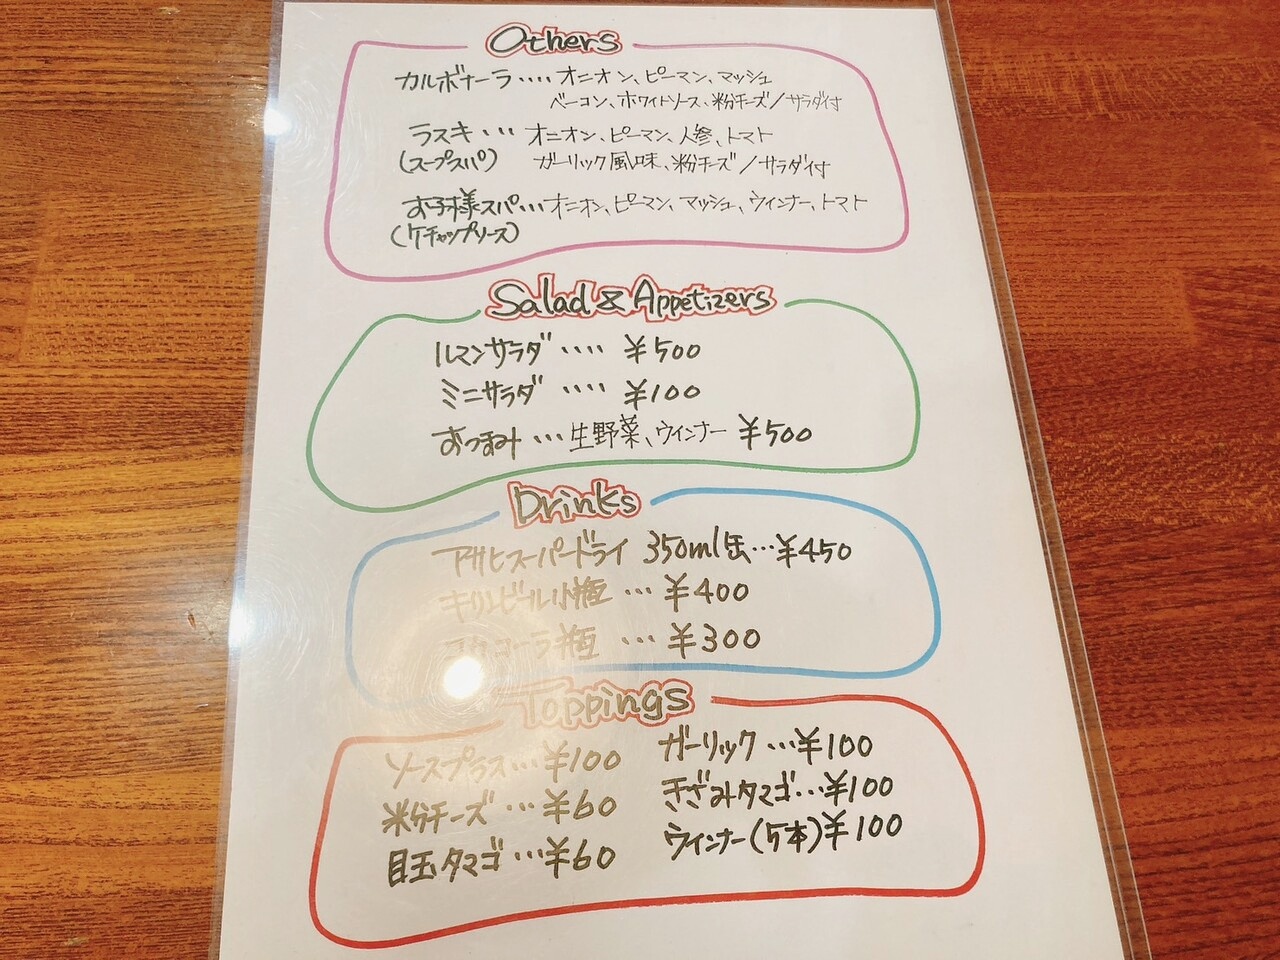 Others
カルボナーラ‥‥オニオン、ピーマン、マッシュ
ベーコン、ホワイトソース、粉チーズ/サラダ付
ラスキ‥‥オニオン、ピーマン、人参、トマト
(スープスパ) ガーリック風味、粉チーズ/サラダ付
お子様スパ…オニオン、ピーマン、マッシュ、ウインナー、トマト
(ケチャップソース)
Salad & Appetizers
ルマンサラダ‥‥¥500
ミニサラダ‥‥¥100
おつまみ…生野菜、ウインナー ¥500
Drinks
アサヒスーパードライ 350ml缶…¥450
キリンビール小瓶…¥400
コカコーラ瓶…¥300
Toppings
ソースプラス…¥100 ガーリック…¥100
粉チーズ…¥60 きざみタマゴ…¥100
目玉タマゴ…¥60 ウインナー(5本)¥100